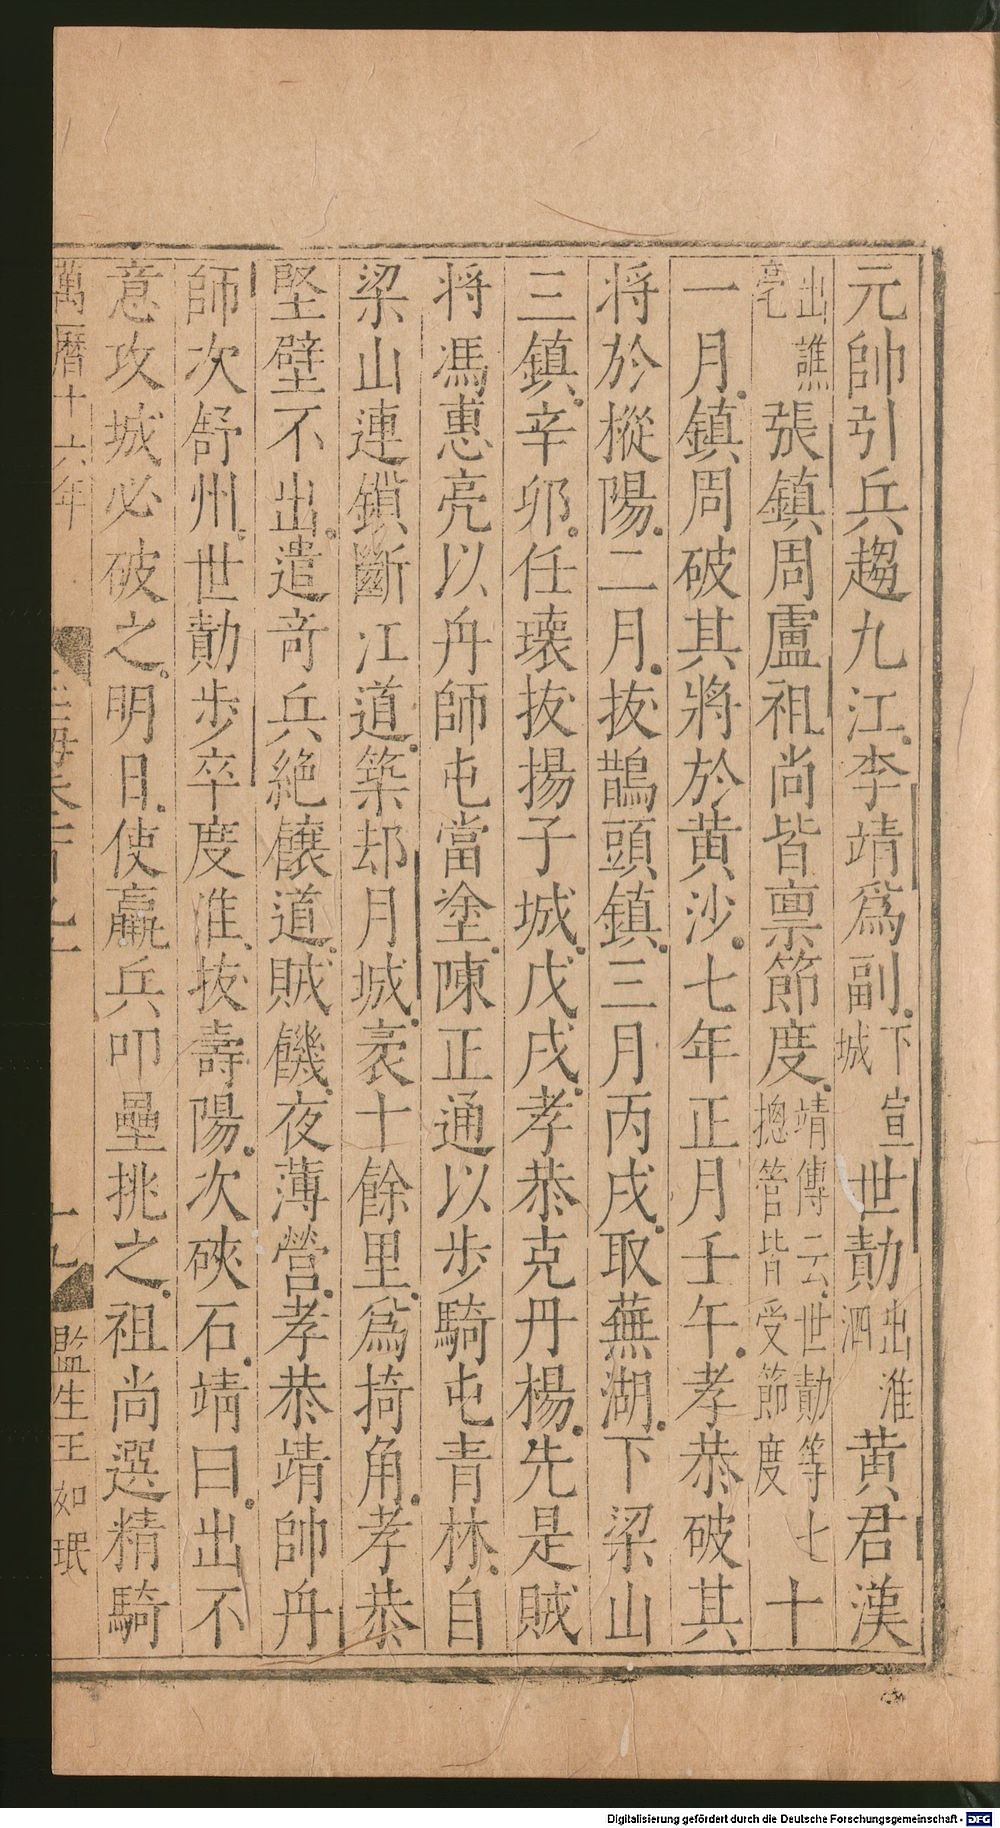 元帥引兵趨九江李靖爲副下宣城世勣出淮泗黃君漢
出譙亳張鎮周盧祖尚皆禀節度靖傳云世勣等七總管皆受節度十
一月鎮周破其將於黃沙七年正月壬午孝恭破其
將於樅陽二月拔鵲頭鎮三月丙戌取蕪湖下梁山
三鎮辛卯任瓌拔揚子城戊戌孝恭克丹楊先是賊
將馮惠亮以舟師屯當塗陳正通以步騎屯青林自
梁山連鎖斷江道築却月城袤十餘里爲掎角孝恭
堅壁不出遣奇兵絶饟道賊饑夜薄營孝恭靖帥舟
師次舒州世勣步卒度淮拔壽陽次硤石靖曰出不
意攻城必破之明日使羸兵叩壘挑之祖尚選精騎
萬曆十六年 十九 監生王如珉
Digitalisierung gefördert durch die Deutsche Forschungsgemeinschaft - DFG